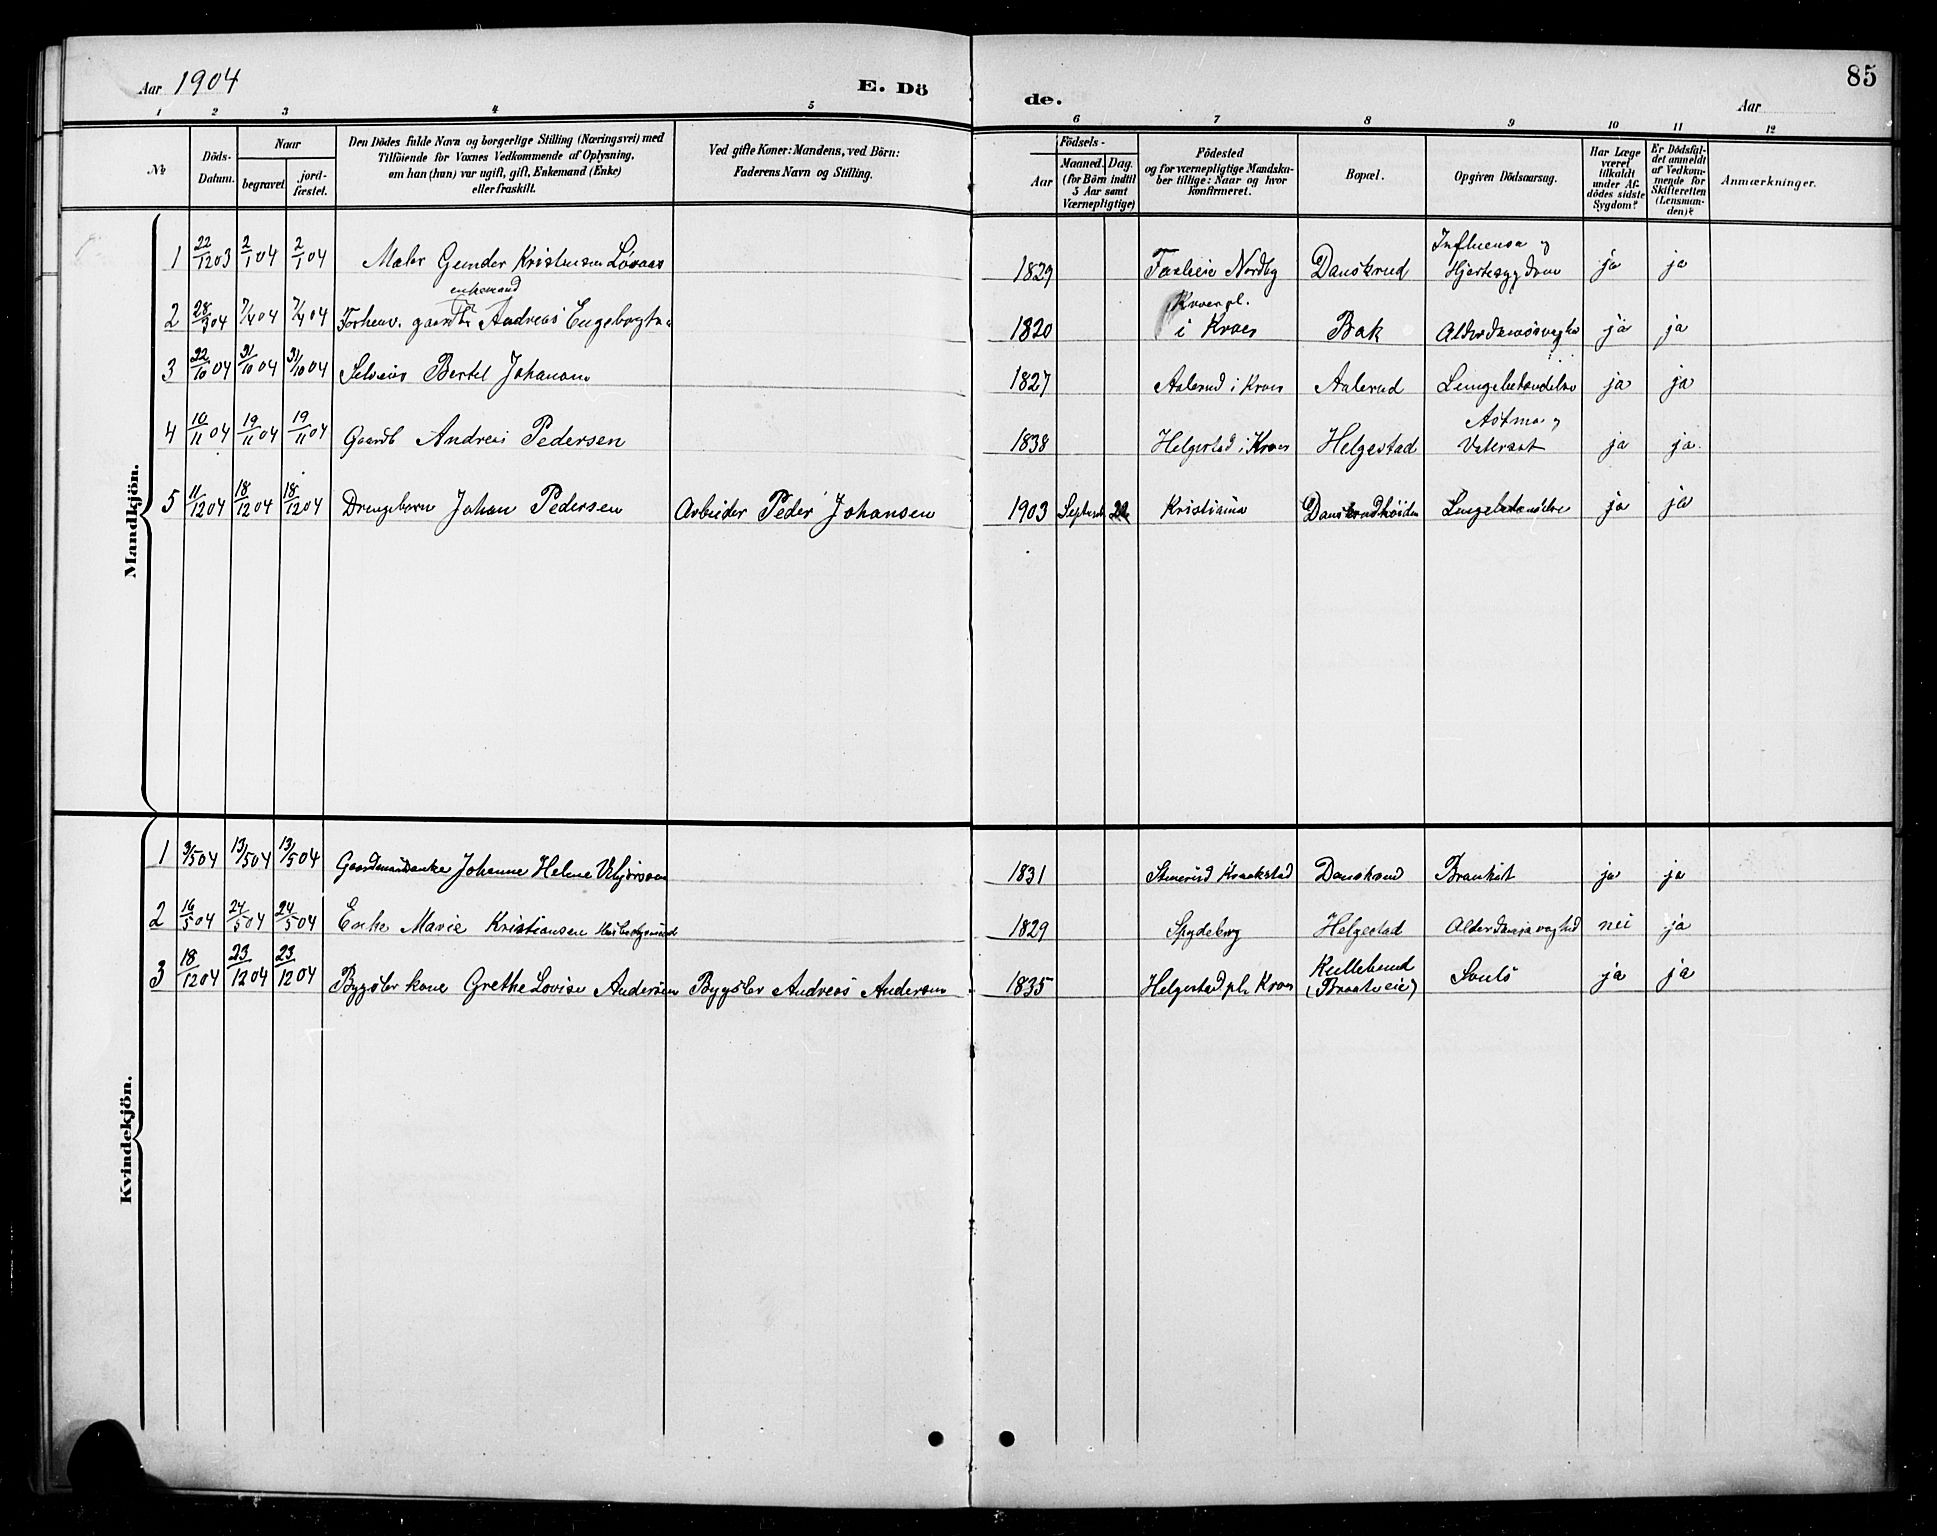 Aar 1904
E. Dö
de.
85
Aar
1 2 3 4 5 6 7 8 9 10 11 12
№
Döds-Datum.
Naar
begravet
jordfæstet.
Den Dödes fulde Navn og borgerlige Stilling (Næringsvei) med
Tilföiende for Voxnes Vedkommende af Oplysning,
om han (hun) var ugift, gift, Enkemand (Enke)
eller fraskilt.
Ved gifte Koner: Mandens, ved Börn:
Faderens Navn og Stilling.
Födsels-
Aar
Maaned. Dag.
(for Börn indtil
5 Aar samt
Værnepligtige)
Födested
og for værnepligtige Mandska-
ber tillige: Naar og hvor
konfirmeret.
Bopæl.
Opgiven Dödsaarsag.
Har Læge
været
tilkaldt
under Af-
dödes sidste
Sygdom?
Er Dödsfal-
det anmeldt
af Vedkom-
mende for
Skifteretten
(Lensman-
den)?
Anmærkninger.
Mandkjön.
1 22/12 03 2/1 04 2/1 04 Maler Gunder Kristensen Løvaas 1829 Nordby Danskrud Influensa og Hjertesygdom ja ja
enkemand
2 28/3 04 7/4 04 7/4 04 Forhenv. gaardbr Andreas 1820 Kroerpl. i Kroer Bak ja ja
3 22/10 04 31/10 04 31/10 04 Bertel Johansen 1827 Aalerud i Kroer Aalerud Lungebetændelse ja ja
4 10/11 04 19/11 04 19/11 04 Gaardb Andreas Pedersen 1838 Helgestad i Kroer Helgestad Astma og Vatersot ja ja
5 11/12 04 18/12 04 18/12 04 Drengebarn Johan Pedersen Arbeider Peder Johansen 1903 Septemb 22 Kristiania Lungebetændelse ja ja
Kvindekjön.
1 3/5 04 13/5 04 13/5 04 Gaardmandsenke Johanne Helene 1831 Kraakstad Danskrud ja ja
2 16/5 04 24/5 04 24/5 04 Enke Marie Kristiansen 1829 Spydeberg Helgestad nei ja
3 18/12 04 23/12 04 23/12 04 Bygsler kone Grethe Lovise Andersen Bygsler Andreas Andersen 1835 Helgestad pl. Kroer ja ja